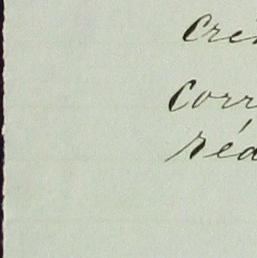 cré
corr
réd